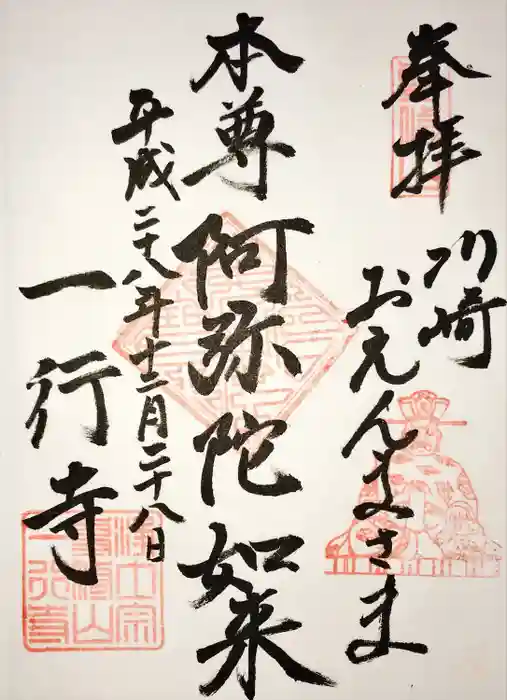 奉拝
川崎
おえんまさま
本尊 阿弥陀如来
平成二十八年十二月二十八日
一行寺
浄土宗
一行寺